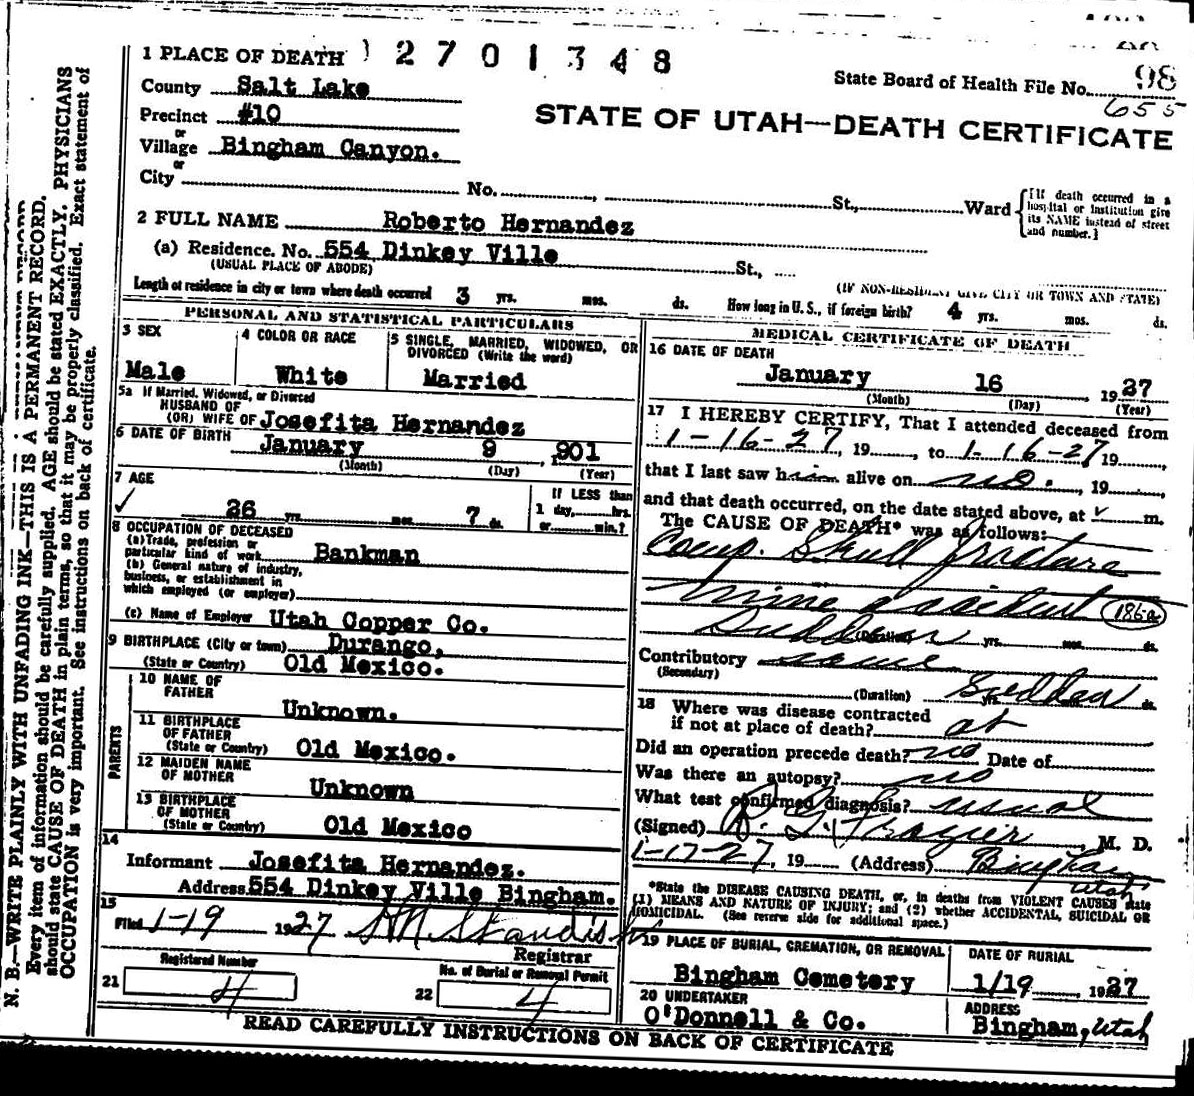 1 PLACE OF DEATH 2701348
State Board of Health File No. 98
655
County Salt Lake
Precinct #10
or
Village Bingham Canyon.
or
City No. St., Ward
STATE OF UTAH—DEATH CERTIFICATE
[If death occurred in a
hospital or institution give
its NAME instead of street
and number.]
2 FULL NAME Roberto Hernandez
(a) Residence. No. 554 Dinkey Ville St.,
(USUAL PLACE OF ABODE)
(IF NON-RESIDENT GIVE CITY OR TOWN AND STATE)
Length of residence in city or town where death occurred 3 yrs. mos. ds. How long in U. S., if foreign birth? 4 yrs. mos. ds.
PERSONAL AND STATISTICAL PARTICULARS
3 SEX
Male
4 COLOR OR RACE
White
5 SINGLE, MARRIED, WIDOWED, OR
DIVORCED (Write the word)
Married
5a If Married, Widowed, or Divorced
HUSBAND OF
(OR) WIFE OF Josefita Hernandez
6 DATE OF BIRTH January 9, 1901
(Month) (Day) (Year)
7 AGE
✓ 26 yrs. mos. 7 ds.
If LESS than
1 day, hrs.
or min.?
8 OCCUPATION OF DECEASED
(a) Trade, profession or
particular kind of work Bankman
(b) General nature of industry,
business, or establishment in
which employed (or employer)
(c) Name of Employer Utah Copper Co.
9 BIRTHPLACE (City or town) Durango,
(State or Country) Old Mexico.
PARENTS
10 NAME OF
FATHER
Unknown.
11 BIRTHPLACE
OF FATHER
(State or Country) Old Mexico.
12 MAIDEN NAME
OF MOTHER
Unknown
13 BIRTHPLACE
OF MOTHER
(State or Country) Old Mexico
14
Informant Josefita Hernandez.
Address 554 Dinkey Ville Bingham.
15
Filed 1-19 1927 Standish
Registrar
Registered Number
21 4
No. of Burial or Removal Permit
22 4
MEDICAL CERTIFICATE OF DEATH
16 DATE OF DEATH
January 16 1927
(Month) (Day) (Year)
17 I HEREBY CERTIFY, That I attended deceased from
1-16-27, 19, to 1-16-27 19,
that I last saw him alive on no., 19,
and that death occurred, on the date stated above, at m.
The CAUSE OF DEATH* was as follows:
Comp. Skull fracture
mine accident 186a
Sudden (Duration) yrs. mos. ds.
Contributory same
(Secondary)
(Duration) Sudden yrs. ds.
18 Where was disease contracted
if not at place of death? at
Did an operation precede death? no Date of
Was there an autopsy? no
What test confirmed diagnosis? usual
(Signed) Frazier M. D.
1-17-27, 19 (Address) Bingham
Utah
*State the DISEASE CAUSING DEATH, or, in deaths from VIOLENT CAUSES state
(1) MEANS AND NATURE OF INJURY; and (2) whether ACCIDENTAL, SUICIDAL OR
HOMICIDAL. (See reverse side for additional space.)
19 PLACE OF BURIAL, CREMATION, OR REMOVAL
Bingham Cemetery
DATE OF BURIAL
1/19, 1927
20 UNDERTAKER
O'Donnell & Co.
ADDRESS
Bingham, Utah
READ CAREFULLY INSTRUCTIONS ON BACK OF CERTIFICATE
N. B.—WRITE PLAINLY WITH UNFADING INK—THIS IS A PERMANENT RECORD.
Every item of information should be carefully supplied. AGE should be stated EXACTLY. PHYSICIANS
should state CAUSE OF DEATH in plain terms, so that it may be properly classified. Exact statement of
OCCUPATION is very important. See instructions on back of certificate.